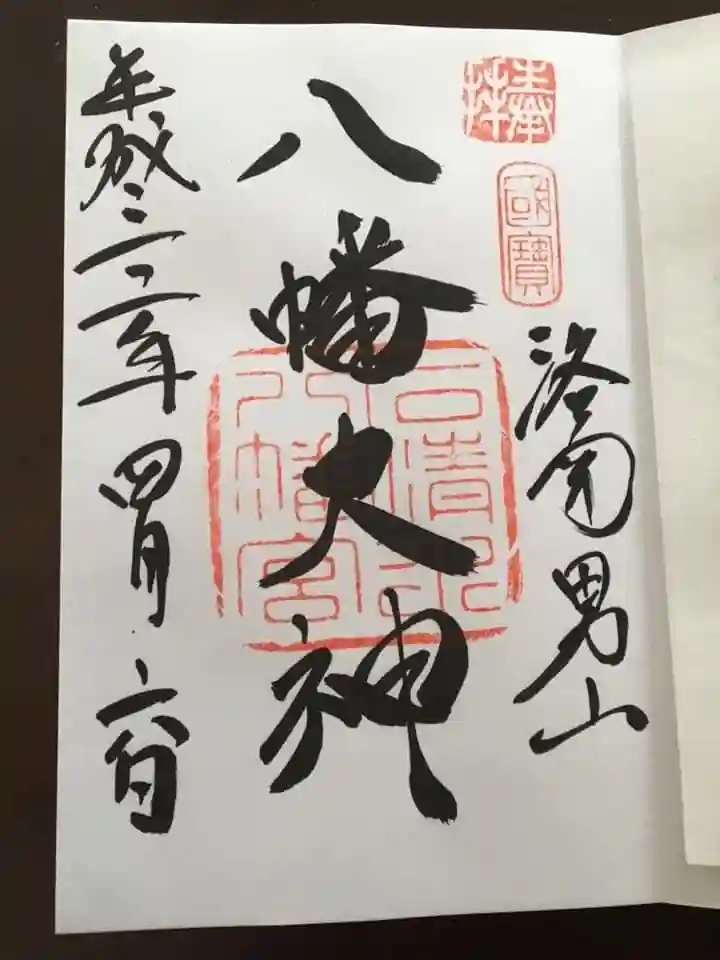 奉拜
國寶
洛南男山
八幡大神
石清水
八幡宮
平成 年四月六日